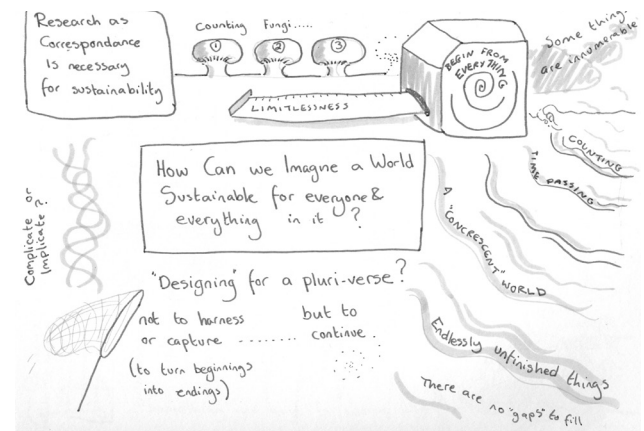 Research as
Correspondance
Is necessary
for sustainability
Counting Fungi.....
1 2 3
LIMITLESSNESS
BEGIN FROM
EVERYTHING
Some things
are innumerable
COUNTING
TIME PASSING
A "CONCRESCENT" WORLD
Complicate or
Implicate?
How Can we Imagine a World
Sustainable for everyone &
everything in it ?
"Designing" for a pluri-verse?
not to harness
or capture ........ but to
continue.
(to turn beginnings
into endings)
Endlessly unfinished things
There are no "gaps" to fill